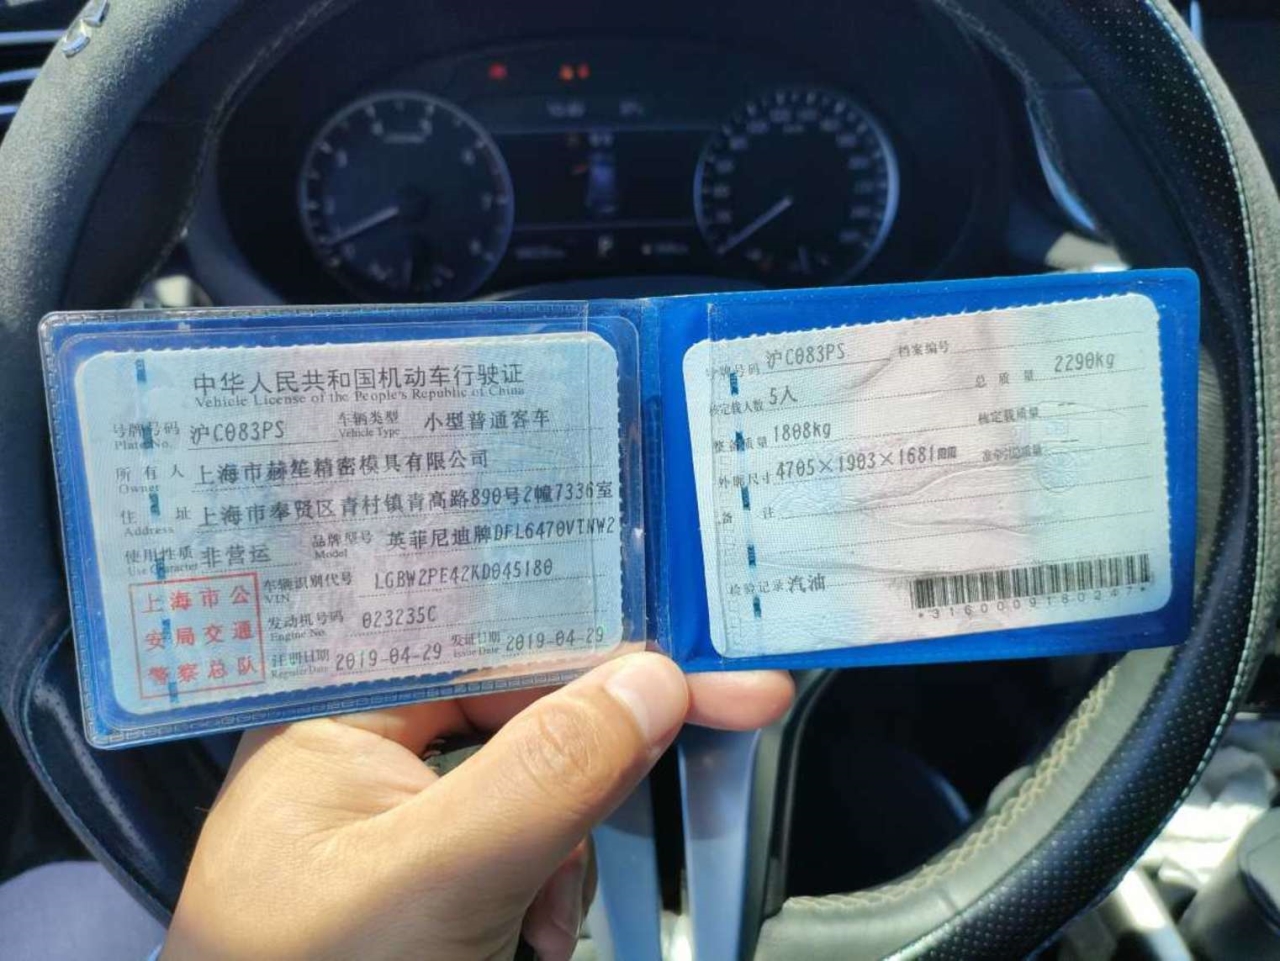 中华人民共和国机动车行驶证
Vehicle License of the People's Republic of China
号牌号码 沪C083PS 车辆类型 小型普通客车
Plate No. Vehicle Type
所有人 上海市赫笙精密模具有限公司
Owner
住址 上海市奉贤区青村镇青高路890号2幢7336室
Address
使用性质 非营运 品牌型号 英菲尼迪牌DFL6470VTNW2
Use Character Model
车辆识别代号 LGBW2PE42KD045180
VIN
发动机号码 023235C
Engine No.
注册日期 2019-04-29 发证日期 2019-04-29
Register Date Issue Date
上海市公
安局交通
警察总队
号牌号码 沪C083PS 档案编号
核定载人数 5人 总质量 2290kg
整备质量 1808kg 核定载质量 --
外廓尺寸 4705×1903×1681mm 准牵引总质量 --
备注
检验记录 汽油
*3160009180247*
P